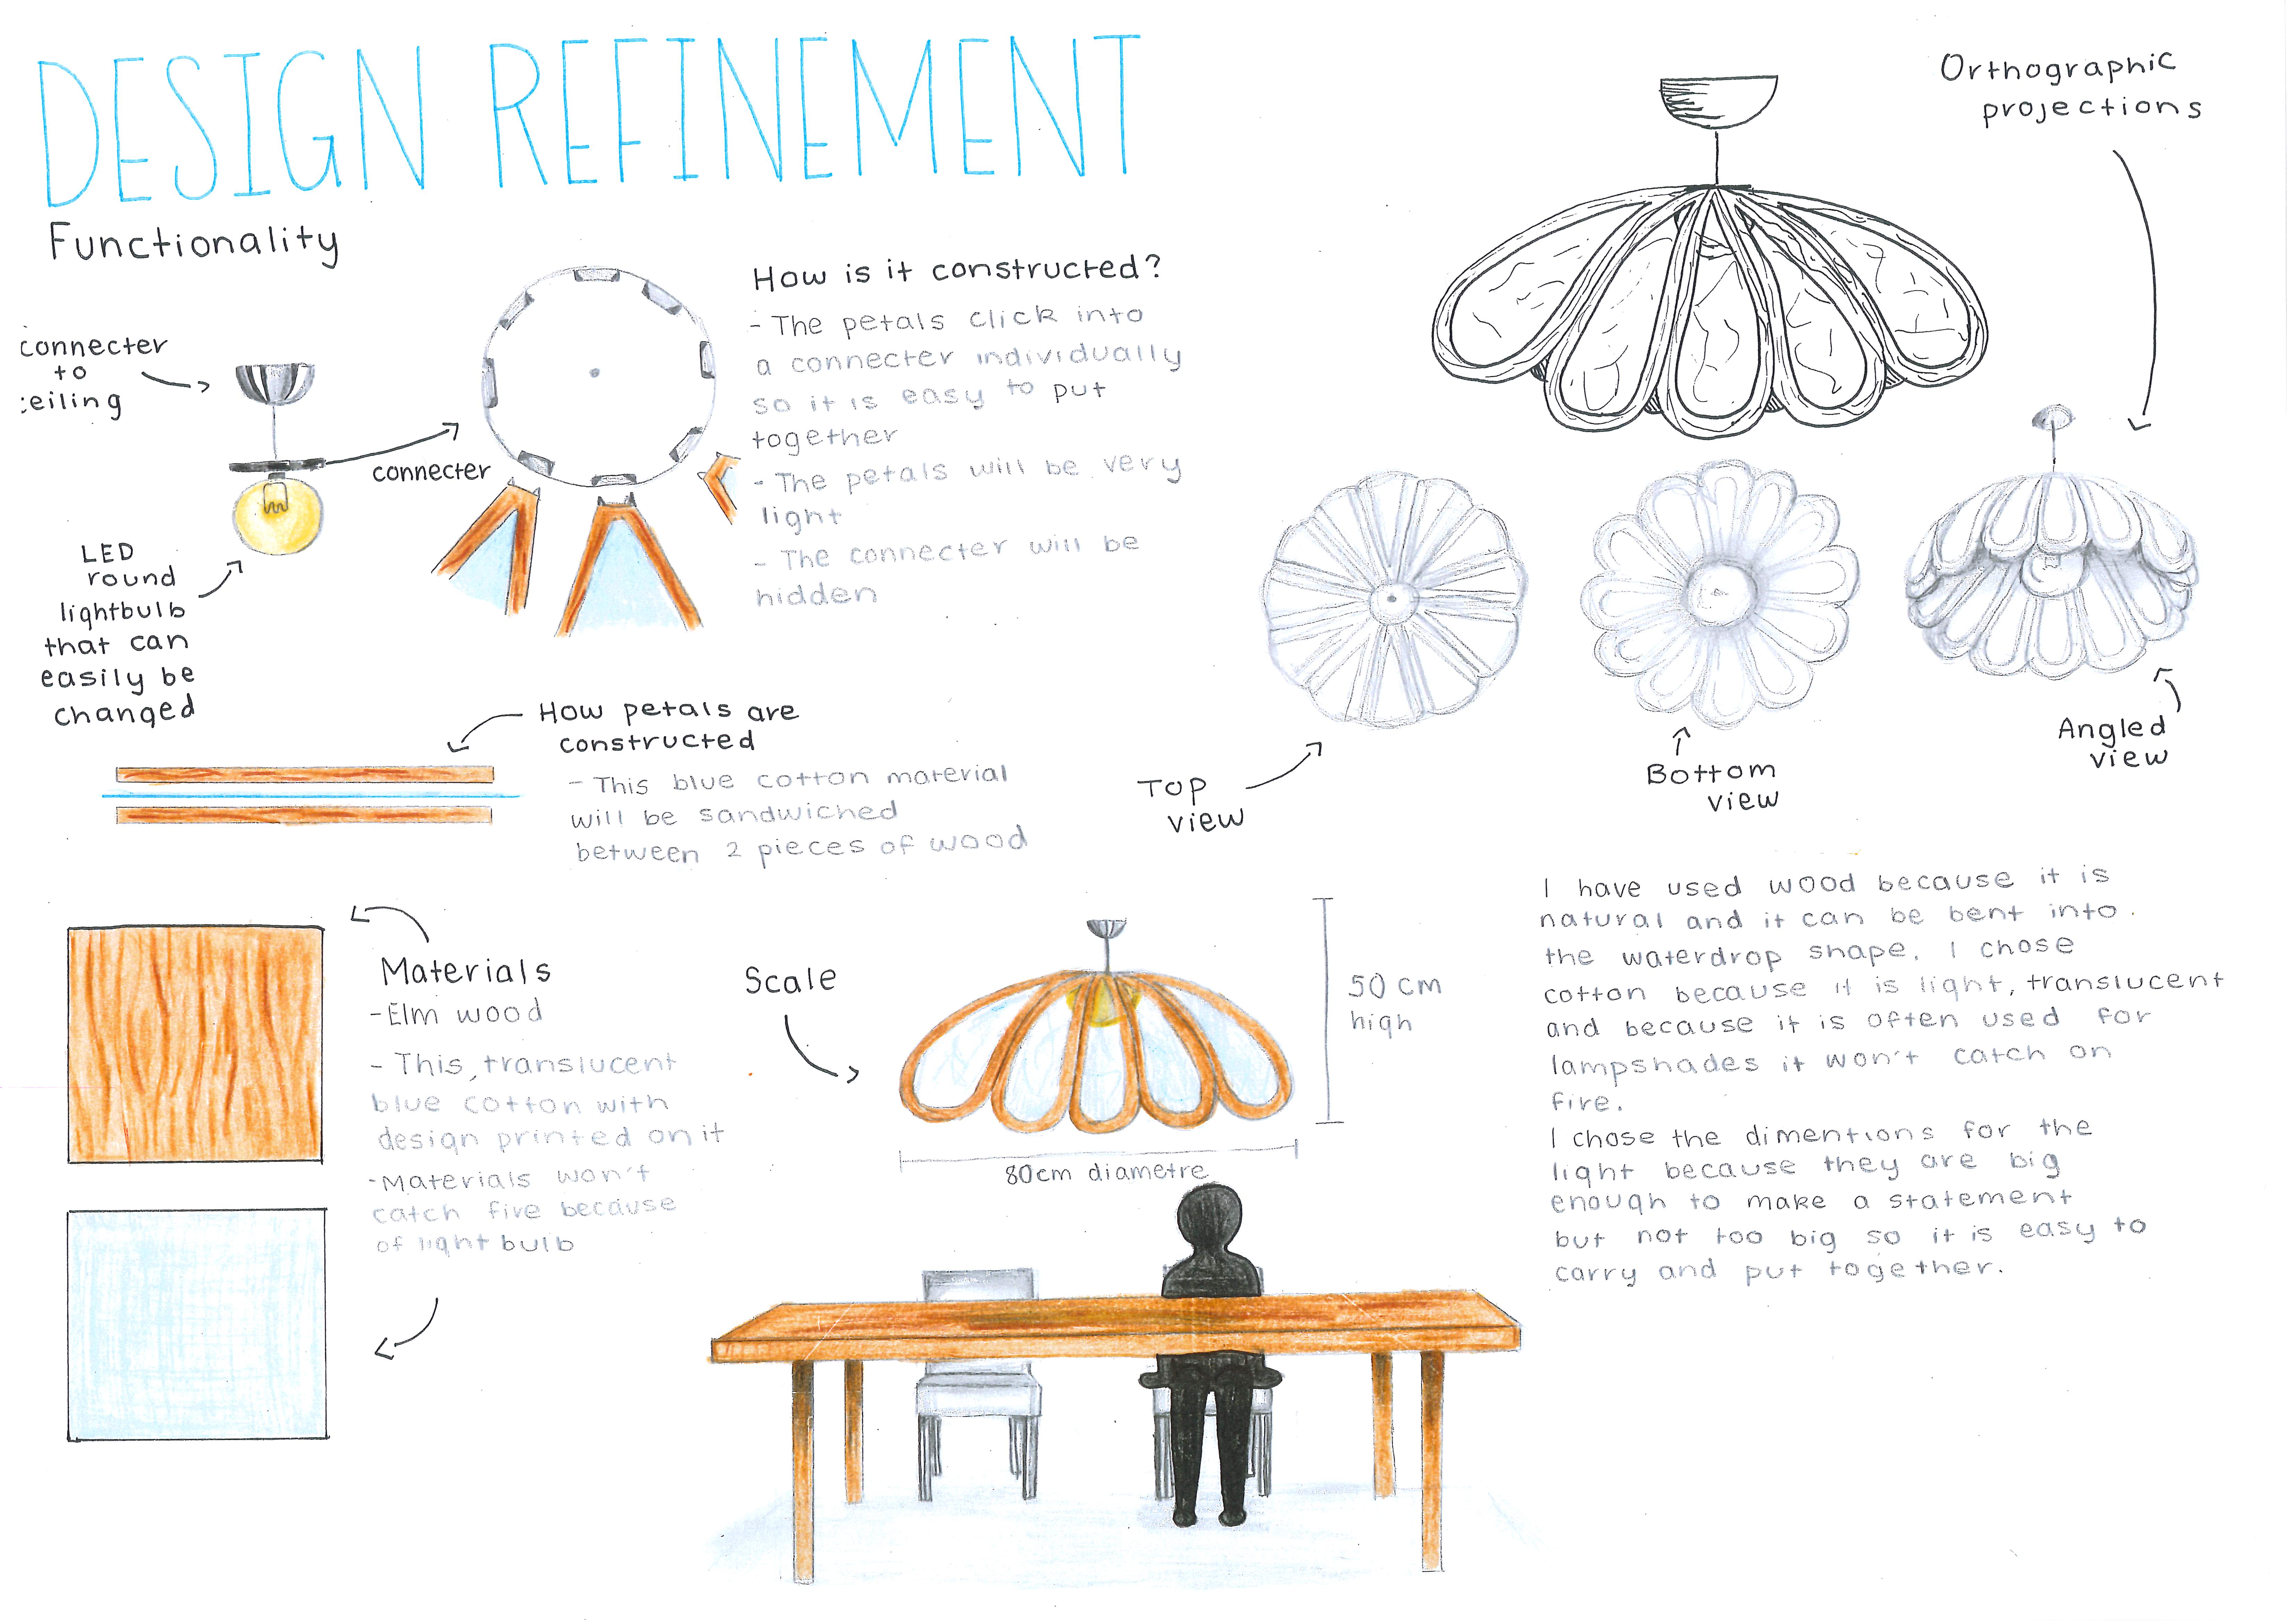 DESIGN REFINEMENT
Functionality
connecter
to
eiling
connecter
LED
round
lightbulb
that can
easily be
changed
How is it constructed?
- The petals click into
a connecter individually
so it is easy to put
together
- The petals will be very
light
- The connecter will be
hidden
How petals are
constructed
- This blue cotton material
will be sandwiched
between 2 pieces of wood
Materials
- Elm wood
- This, translucent
blue cotton with
design printed on it
- Materials won't
catch five because
of light bulb
Scale
50 cm
high
80cm diametre
Orthographic
projections
Top
view
Bottom
view
Angled
view
I have used wood because it is
natural and it can be bent into
the waterdrop shape. I chose
cotton because it is light, translucent
and because it is often used for
lampshades it won't catch on
fire.
I chose the dimentions for the
light because they are big
enough to make a statement
but not too big so it is easy to
carry and put together.